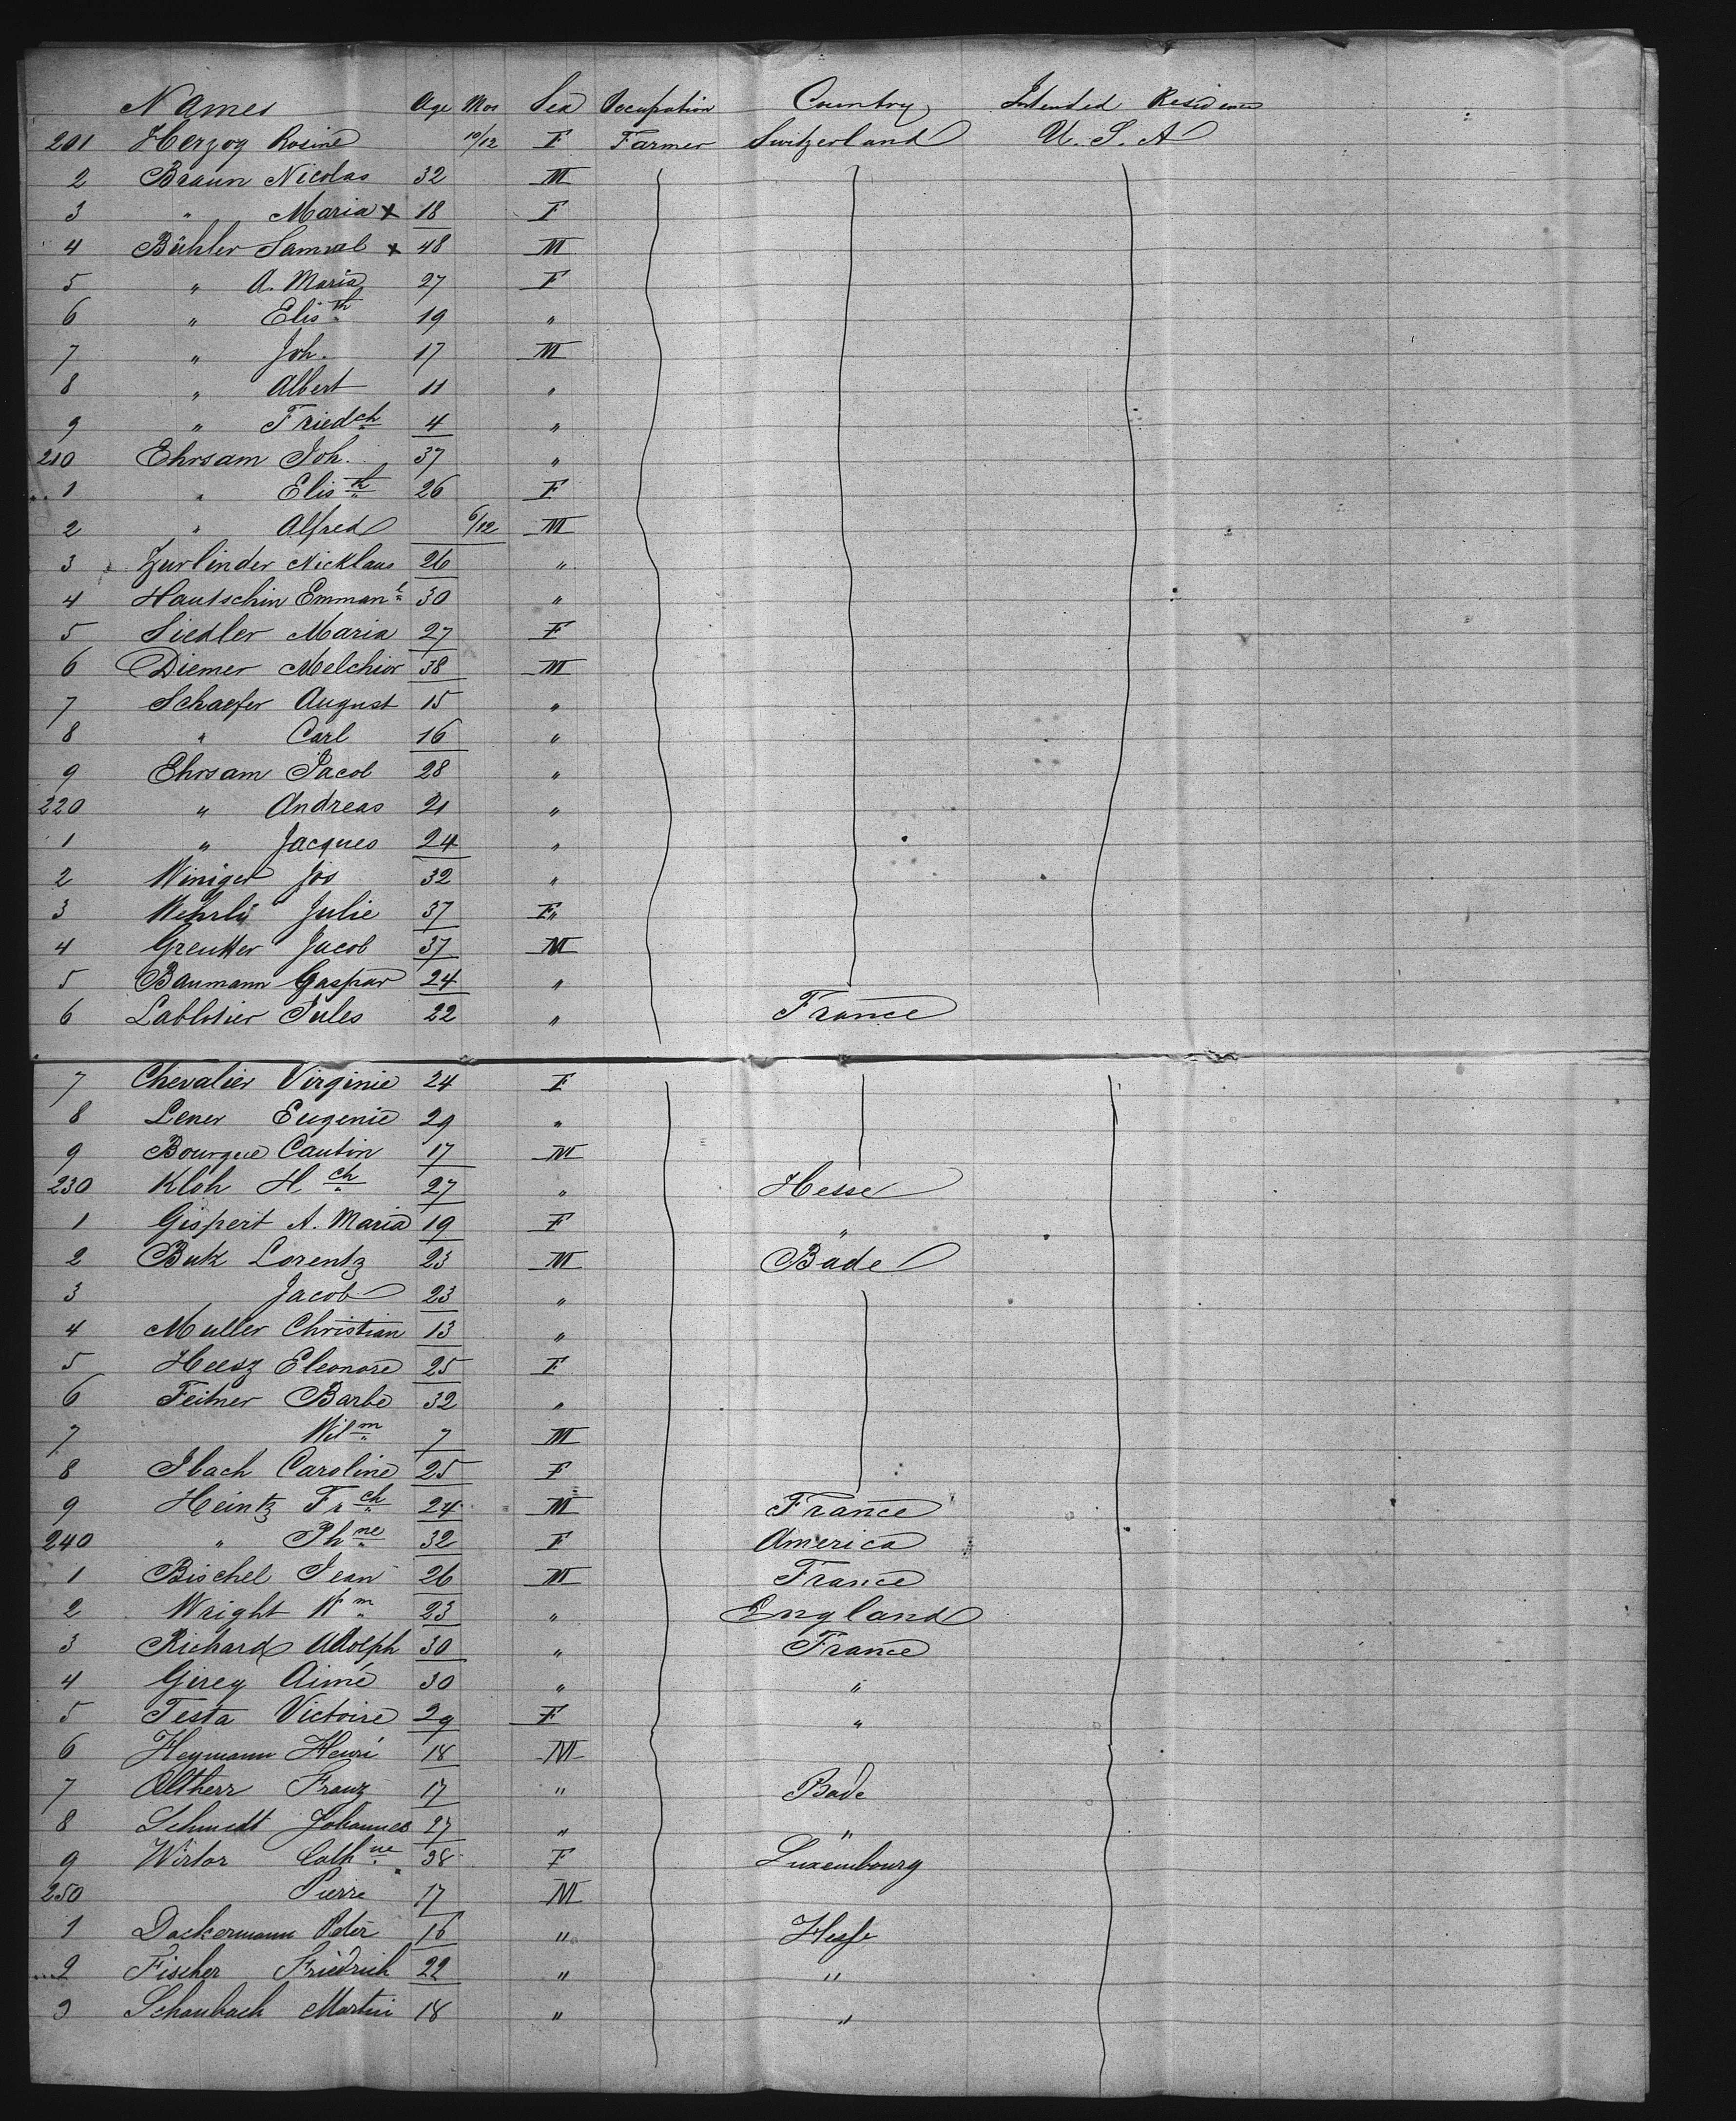 Names Age Mos Sex Occupation Country Intended Residence
201 Herzog Rosine 10/12 F Farmer Switzerland U. S. A
2 Braun Nicolas 32 M
3 " Maria x 18 F
4 Bühler Samuel x 48 M
5 " A. Maria 27 F
6 " Elisth 19 "
7 " Joh. 17 M
8 " Albert 11 "
9 " Friedch 4 "
210 Ehrsam Joh. 37 "
1 " Elisth 26 F
2 " Alfred 6/12 M
3 Zurlinder Nicklaus 26 "
4 Hautschin Emmanl 30 "
5 Siedler Maria 27 F
6 Diemer Melchior 38 M
7 Schaefer August 15 "
8 " Carl 16 "
9 Ehrsam Jacob 28 "
220 " Andreas 21 "
1 " Jacques 24 "
2 Winiger Jos 32 "
3 Wehrli Julie 37 F"
4 Greutter Jacob 37 M
5 Baumann Gaspar 24 "
6 Lablotier Jules 22 " France
7 Chevalier Virginie 24 F
8 Lener Eugenie 29 "
9 Cautin 17 M
230 Kloh Hch 27 " Hesse
1 Gispert A. Maria 19 F "
2 Butz Lorentz 23 M Bade
3 Jacob 23 "
4 Muller Christian 13 "
5 Heesz Eleonore 25 F
6 Feitner Barbe 32 "
7 Wilm 7 M
8 Ibach Caroline 25 F
9 Heintz Frch 24 M France
240 " Phne 32 F America
1 Bischel Jean 26 M France
2 Wright Wm 23 " England
3 Richard Adolph 30 " France
4 Girey Aimé 30 " "
5 Testa Victoire 29 F "
6 Heymann Henri 18 M
7 Altherr Franz 17 " Bade
8 Schmidt Johannes 27 " "
9 Wirtor Cathne 38 F Luxembourg
250 Pierre 17 M
1 Dackermann Peter 16 " Hesse
2 Fischer Friedrich 22 " "
3 Schaubach Martin 18 " "